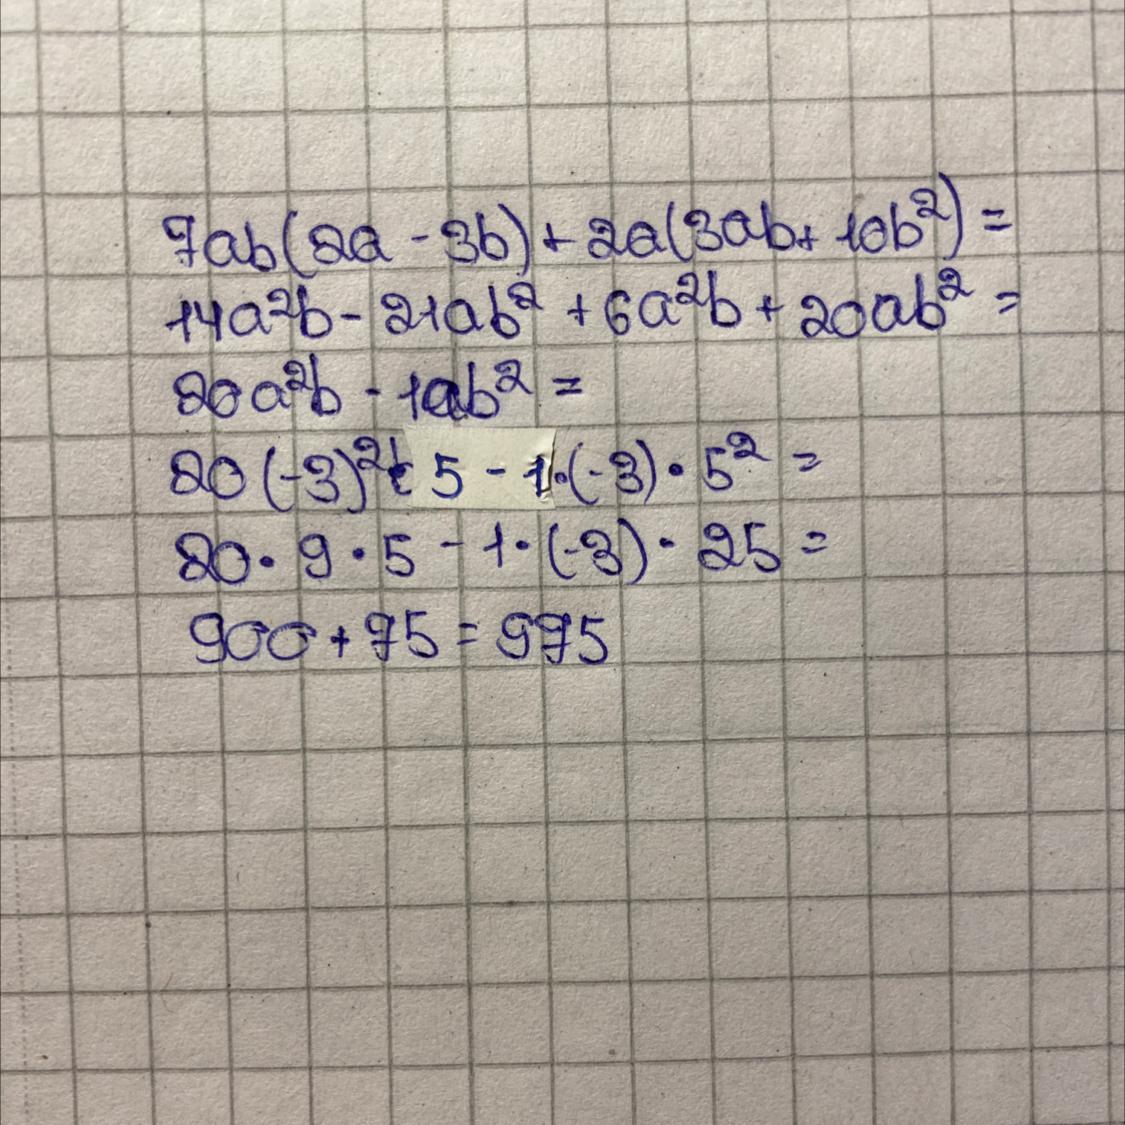 7ab(2a - 3b) + 2a(3ab + 10b²) =
14a²b - 21ab² + 6a²b + 20ab² =
20a²b - 1ab² =
20(-3)² 5 - 1·(-3)·5² =
20·9·5 - 1·(-3)·25 =
900 + 75 = 975